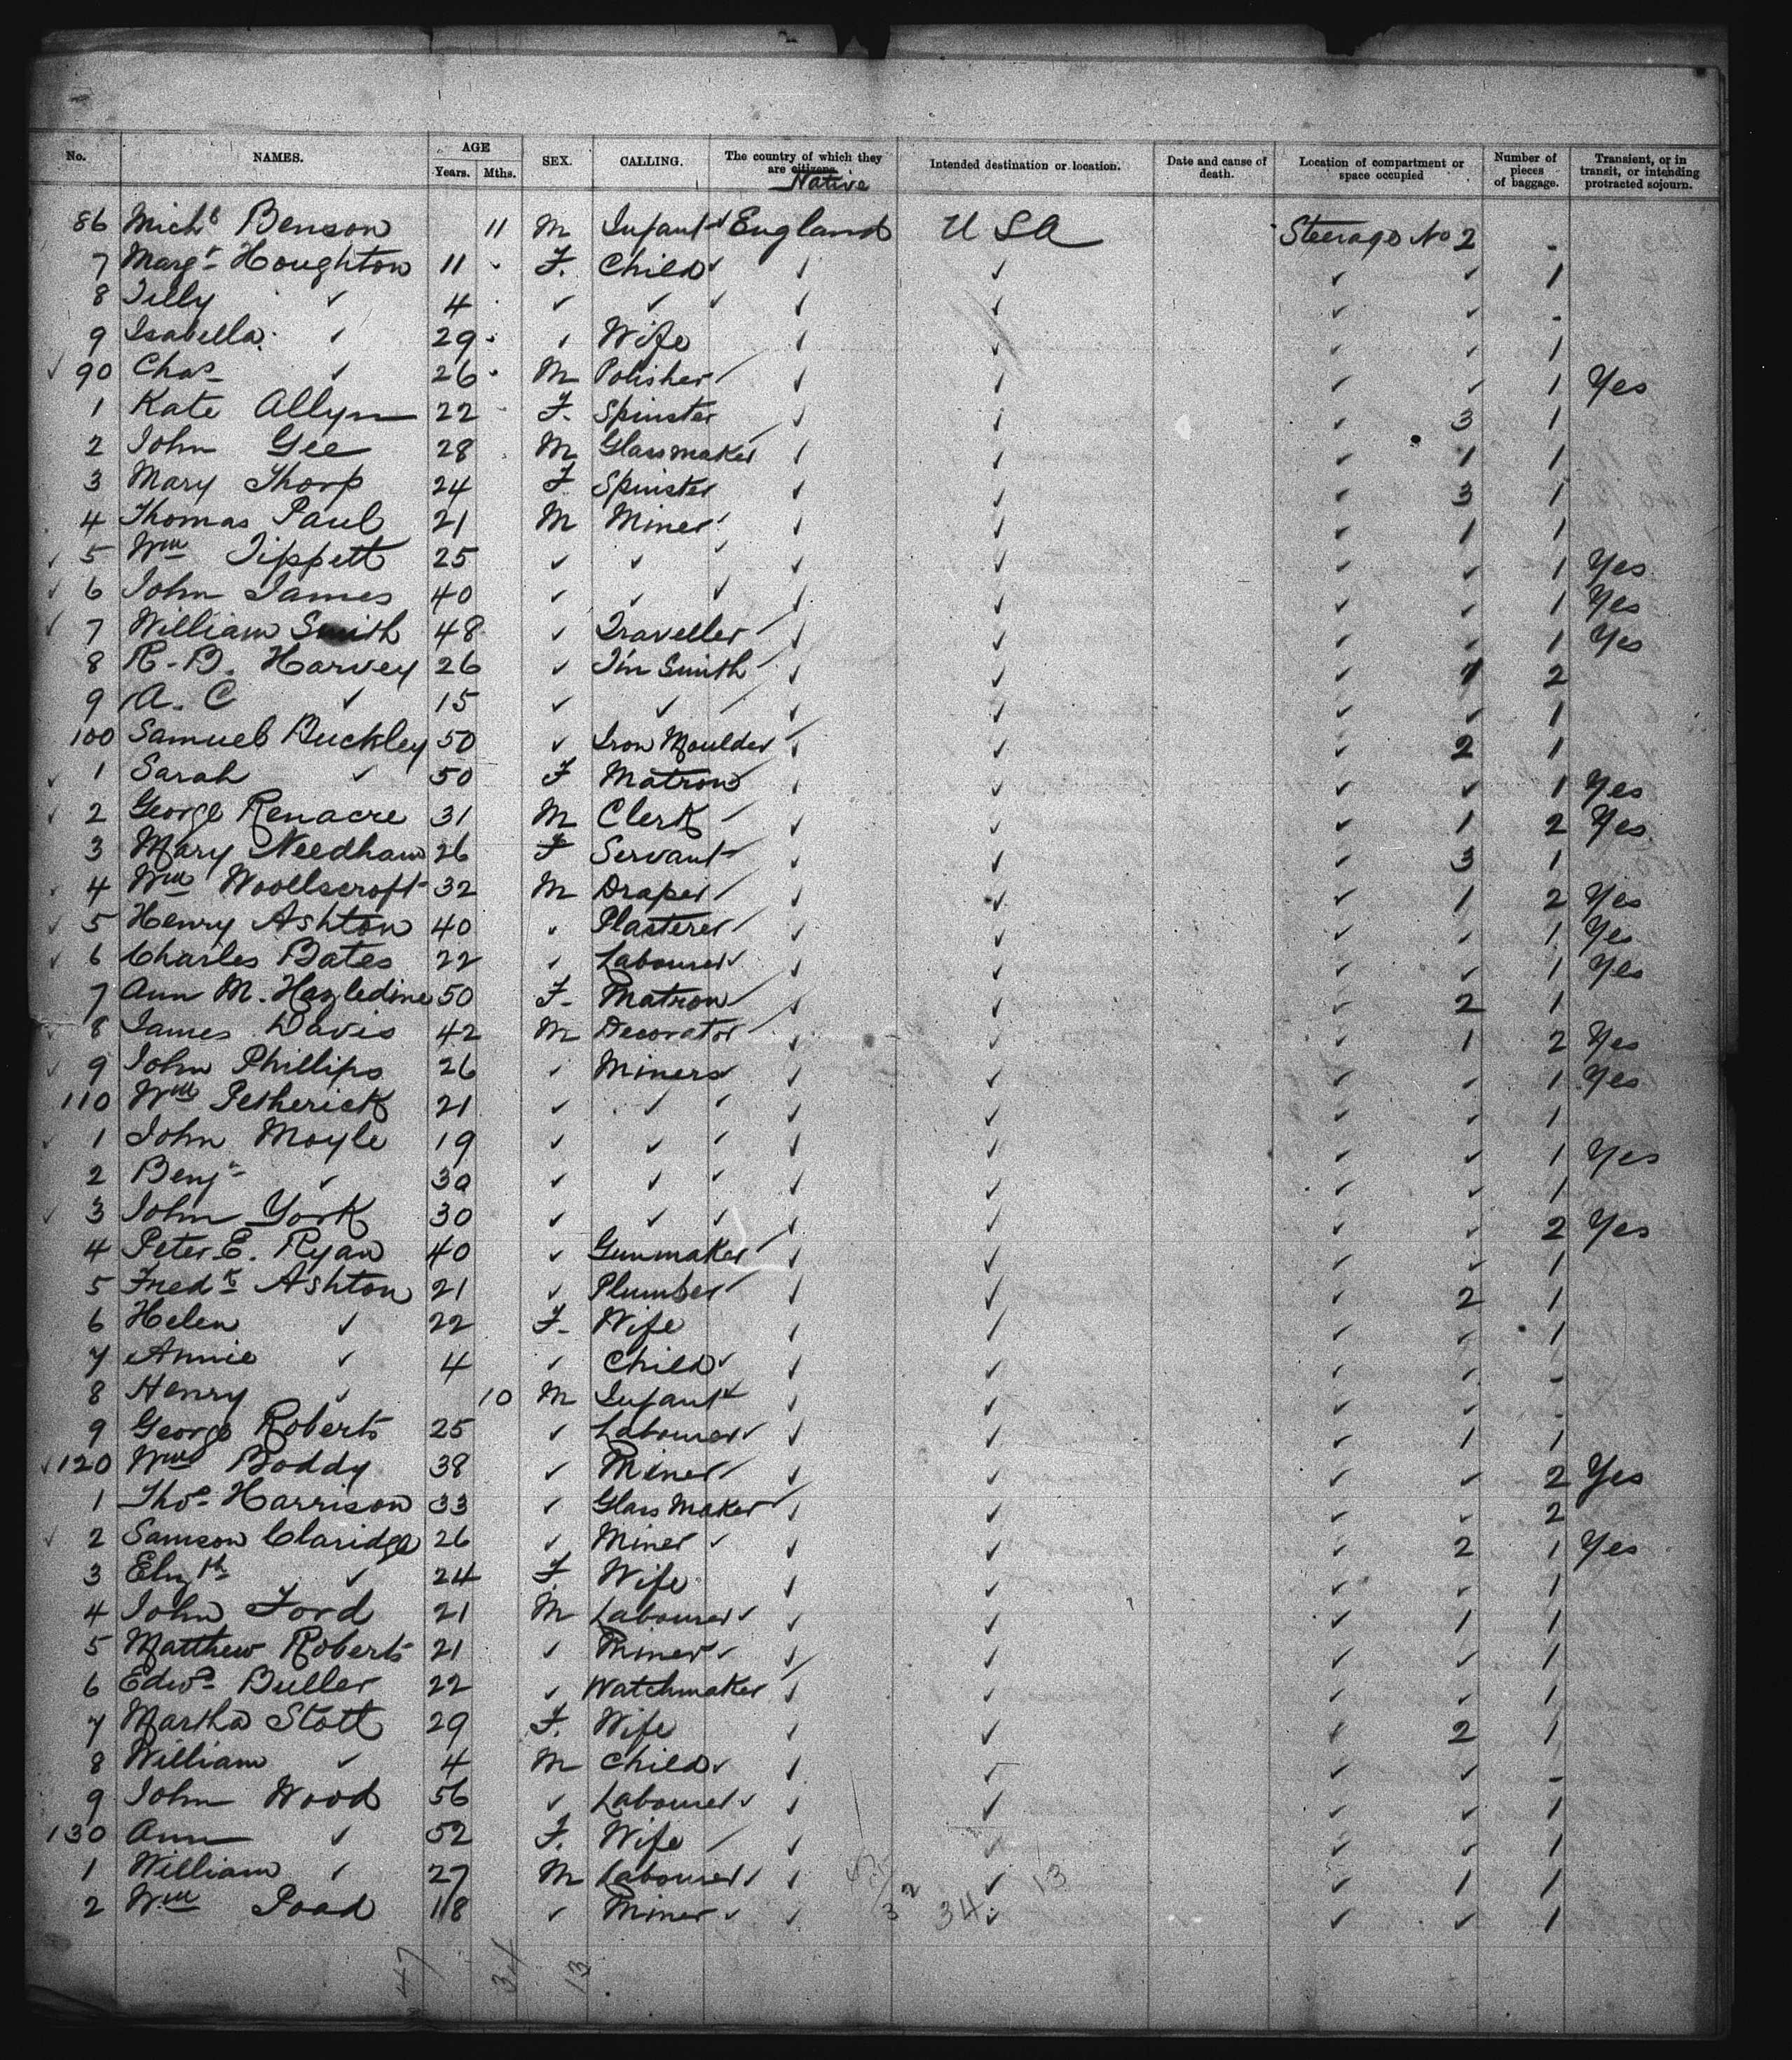 No. NAMES. AGE Years. Mths. SEX. CALLING. The country of which they are citizens. Native Intended destination or location. Date and cause of death. Location of compartment or space occupied Number of pieces of baggage. Transient, or in transit, or intending protracted sojourn.
86 Michl Benson 11 M Infant England U S A Steerage No 2 -
7 Margt Houghton 11 F. Child ✓ ✓ ✓ ✓ 1
8 Tilly ✓ 4 ✓ ✓ ✓ ✓ ✓ ✓ -
9 Isabella ✓ 29 ✓ Wife ✓ ✓ ✓ ✓ 1
✓ 90 Chas ✓ 26 M Polisher ✓ ✓ ✓ ✓ 1 Yes
1 Kate Allyn 22 F. Spinster ✓ ✓ ✓ 3 1
2 John Gee 28 M Glassmaker ✓ ✓ ✓ 1 1
3 Mary Thorp 24 F Spinster ✓ ✓ ✓ 3 1
4 Thomas Paul 21 M Miner ✓ ✓ ✓ 1 1
✓ 5 Wm Tippett 25 ✓ ✓ ✓ ✓ ✓ ✓ 1 Yes
✓ 6 John James 40 ✓ ✓ ✓ ✓ ✓ ✓ 1 Yes
✓ 7 William Smith 48 ✓ Traveller ✓ ✓ ✓ ✓ 1 Yes
8 R. B. Harvey 26 ✓ Tin Smith ✓ ✓ ✓ 1 2
9 A. C ✓ 15 ✓ ✓ ✓ ✓ ✓ ✓ 1
100 Samuel Buckley 50 ✓ Iron Moulder ✓ ✓ ✓ 2 1
✓ 1 Sarah ✓ 50 F Matron ✓ ✓ ✓ ✓ 1 Yes
✓ 2 George Renacre 31 M Clerk ✓ ✓ ✓ 1 2 Yes
3 Mary Needham 26 F Servant ✓ ✓ ✓ 3 1
✓ 4 Wm Woollscroft 32 M Draper ✓ ✓ ✓ 1 2 Yes
✓ 5 Henry Ashton 40 ✓ Plasterer ✓ ✓ ✓ ✓ 1 Yes
✓ 6 Charles Bates 22 ✓ Labourer ✓ ✓ ✓ ✓ 1 Yes
7 Ann M. Hazledine 50 F. Matron ✓ ✓ ✓ 2 1
✓ 8 James Davis 42 M Decorator ✓ ✓ ✓ 1 2 Yes
✓ 9 John Phillips 26 ✓ Miners ✓ ✓ ✓ ✓ 1 Yes
110 Wm Petherick 21 ✓ ✓ ✓ ✓ ✓ ✓ 1
✓ 1 John Moyle 19 ✓ ✓ ✓ ✓ ✓ ✓ 1 Yes
2 Benjn ✓ 30 ✓ ✓ ✓ ✓ ✓ ✓ 1
✓ 3 John York 30 ✓ ✓ ✓ ✓ ✓ ✓ 2 Yes
4 Peter E. Ryan 40 ✓ Gunmaker ✓ ✓ ✓ ✓ 1
5 Fredk Ashton 21 ✓ Plumber ✓ ✓ ✓ 2 1
6 Helen ✓ 22 F. Wife ✓ ✓ ✓ ✓ 1
7 Annie ✓ 4 ✓ Child ✓ ✓ ✓ ✓ -
8 Henry ✓ 10 M Infant ✓ ✓ ✓ ✓ -
9 George Roberts 25 ✓ Labourer ✓ ✓ ✓ 1 1
✓ 120 Wm Boddy 38 ✓ Miner ✓ ✓ ✓ ✓ 2 Yes
1 Thos Harrison 33 ✓ Glass Maker ✓ ✓ ✓ ✓ 2
✓ 2 Samson Claridge 26 ✓ Miner ✓ ✓ ✓ 2 1 Yes
3 Elizth ✓ 24 F Wife ✓ ✓ ✓ ✓ 1
4 John Ford 21 M Labourer ✓ ✓ ✓ 1 1
5 Matthew Roberts 21 ✓ Miner ✓ ✓ ✓ ✓ 1
6 Edwd Buller 22 ✓ Watchmaker ✓ ✓ ✓ ✓ 1
7 Martha Stott 29 F. Wife ✓ ✓ ✓ 2 1
8 William ✓ 4 M Child ✓ ✓ ✓ ✓ -
9 John Wood 56 ✓ Labourer ✓ ✓ ✓ ✓ 1
130 Ann ✓ 52 F. Wife ✓ ✓ ✓ ✓ 1
1 William ✓ 27 M Labourer ✓ ✓ 13 ✓ 1 1
2 Wm Poad 18 ✓ Miner ✓ ✓ 34 ✓ ✓ ✓ 1
47 34 13